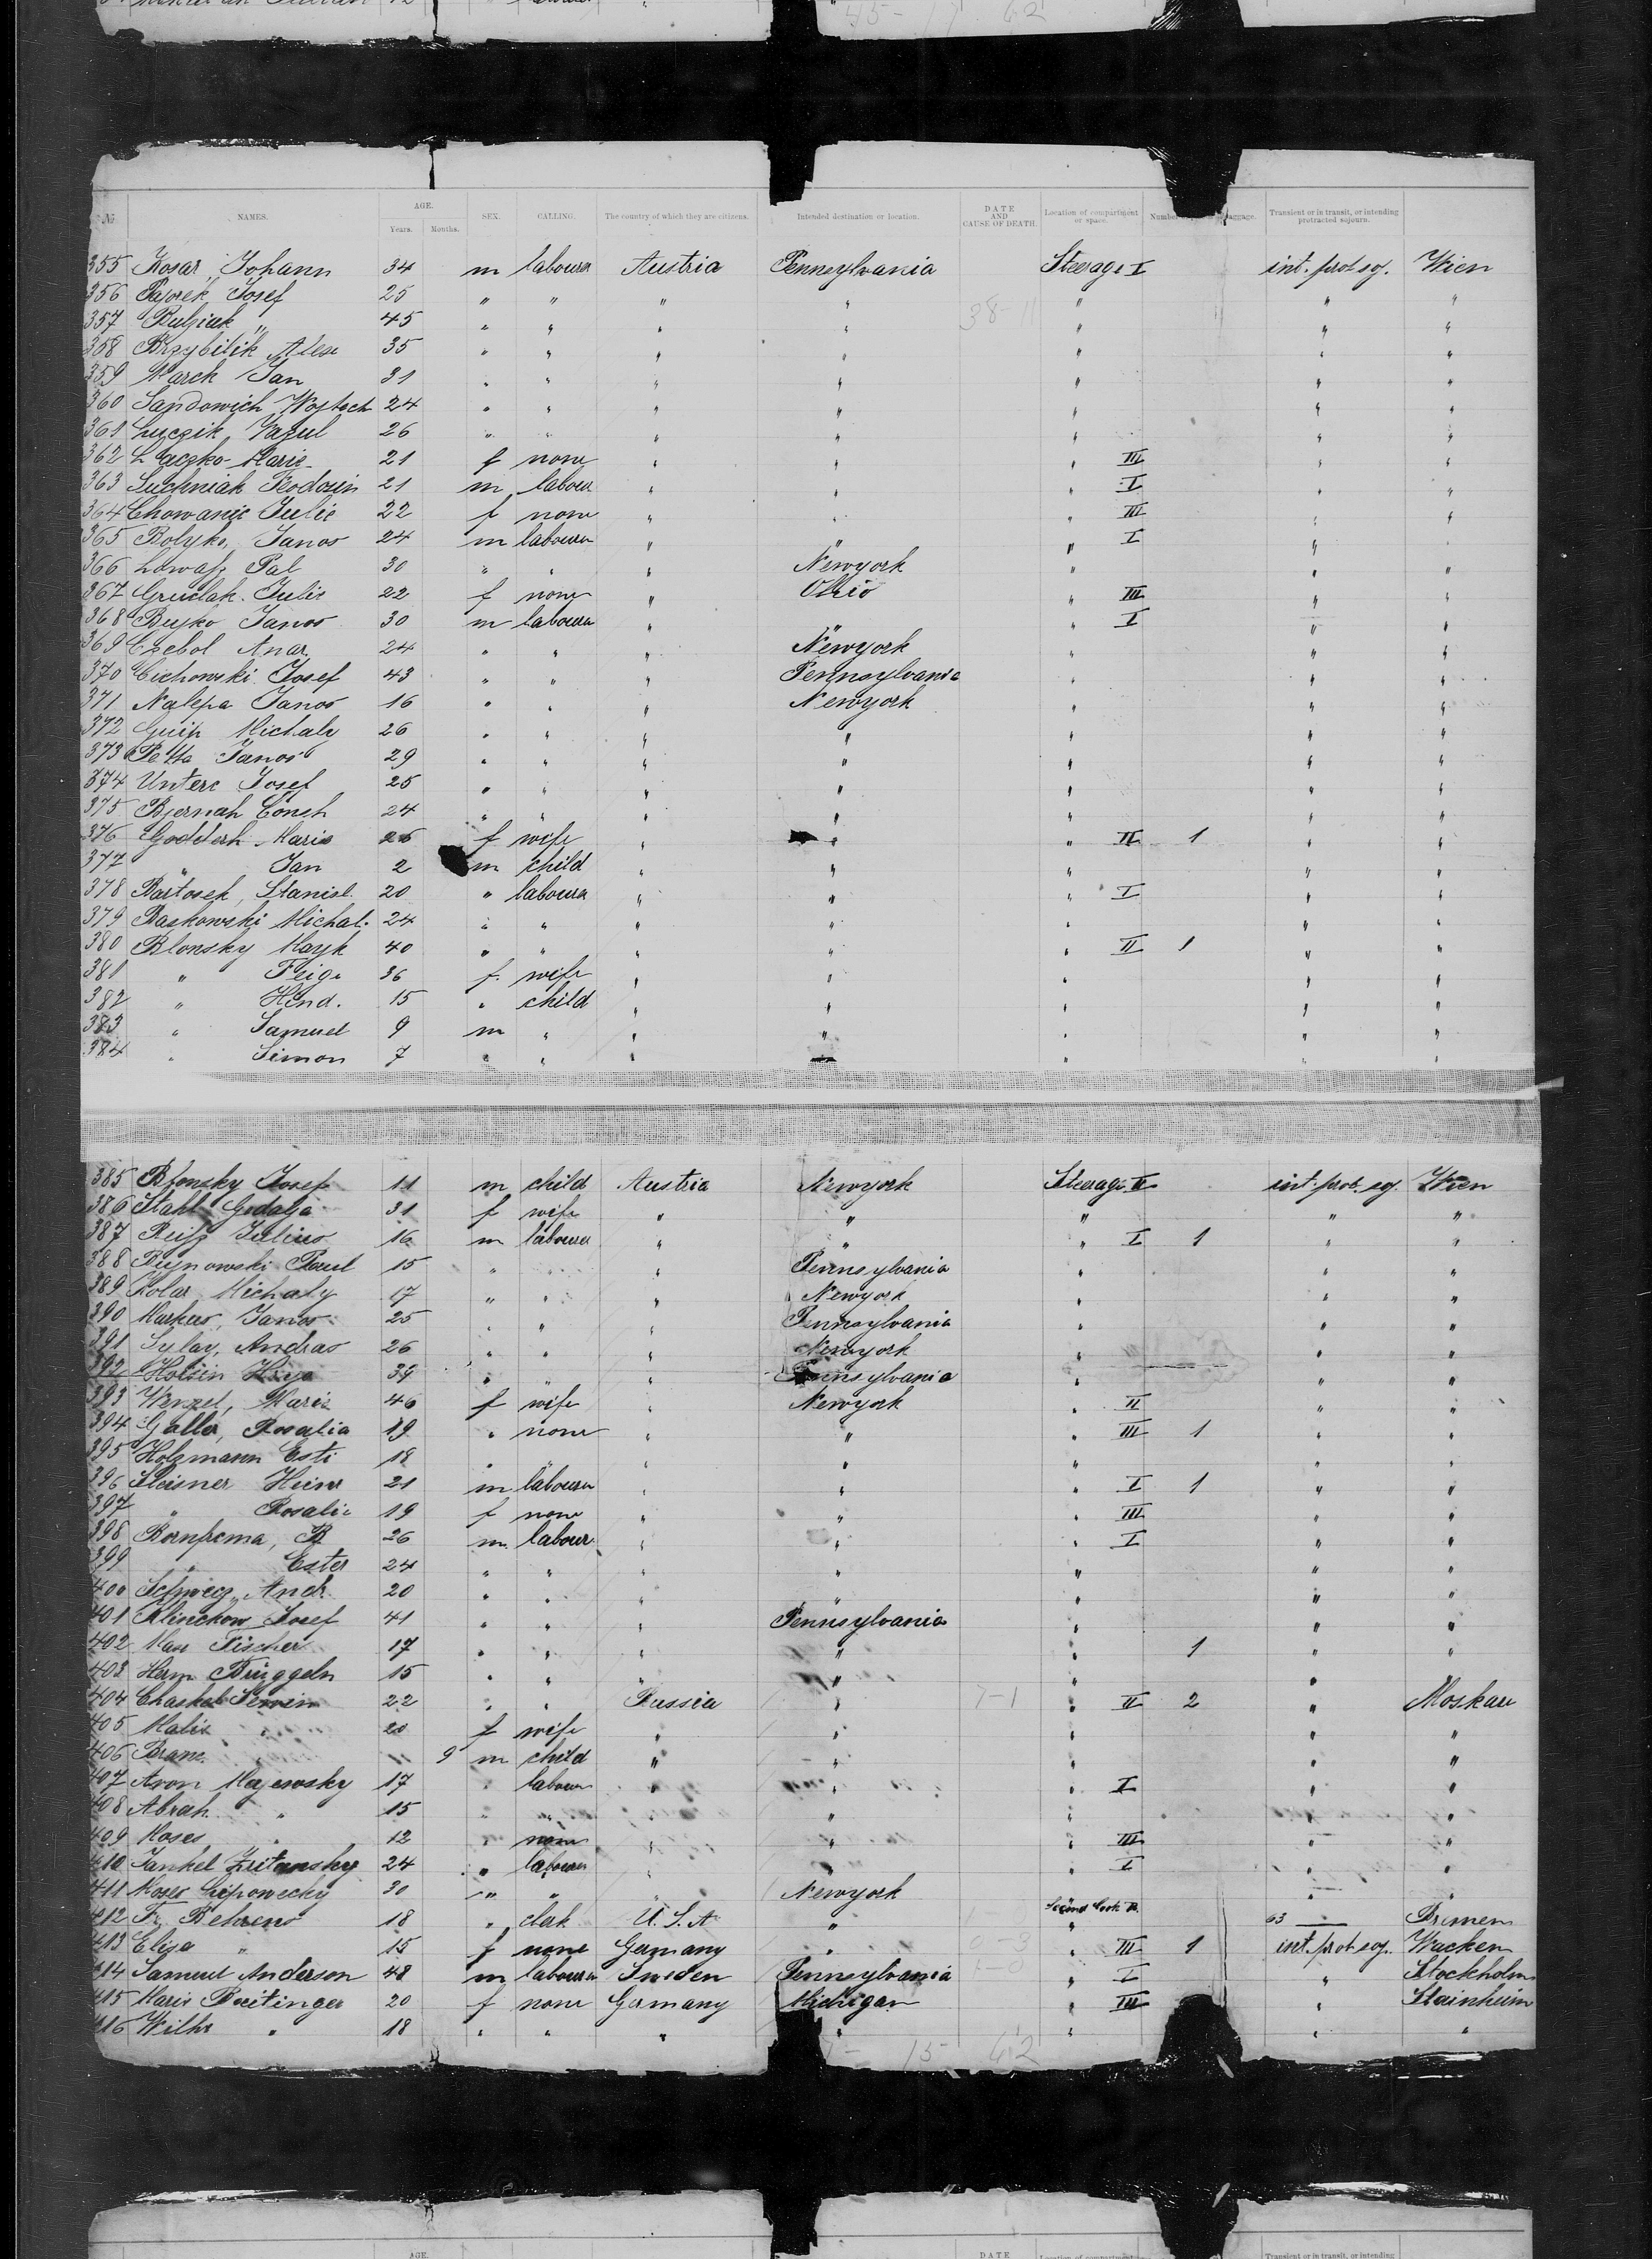 45- 17 62
No. NAMES. AGE. Years. Months. SEX. CALLING. The country of which they are citizens. Intended destination or location. DATE AND CAUSE OF DEATH. Location of compartment or space. Number Transient or in transit, or intending protracted sojourn.
355 Kosar, Johann 34 m laboura Austria Pennsylvania Steerage I int. prot soj. Wien
356 Pajorek, Josef 25 " " " " 38-11 " " "
357 Rulziak " 45 " " " " " " "
358 Brzybilik Alex 35 " " " " " " "
359 Marek Jan 31 " " " " " " "
360 Sandowich Wojtech 24 " " " " " " "
361 Luczik, Vazul 26 " " " " " " "
362 Laczko Marie 21 f none " " " III " "
363 Suchniak Teodozin 21 m labour " " " I " "
364 Chowanic Julie 22 f none " " " III " "
365 Bolyko, Janos 24 m laboura " " " I " "
366 Lowasz Pal 30 " " " Newyork " " "
367 Grudak Julie 22 f none " Ohio " III " "
368 Bujko Janos 30 m laboura " " " I " "
369 Czebol Anar. 24 " " " Newyork " " "
370 Cichowski Josef 43 " " " Pennsylvania " " "
371 Nalepa Janos 16 " " " Newyork " " "
372 Michaly 26 " " " " " " "
373 Petta Janos 29 " " " " " " "
374 Unterc Josef 25 " " " " " " "
375 Bjernah 24 " " " " " " "
376 Godderh Marie 26 f wife " " " II 1 " "
377 " Jan 2 m child " " " " "
378 Bartosek, Stanisl. 20 " laboura " " " I " "
379 Paskowski Michal. 24 " " " " " " "
380 Blonsky Mayk 40 " " " " " II 1 " "
381 " Feige 36 f. wife " " " " "
382 " Hend. 15 " child " " " " "
383 " Samuel 9 m " " " " " "
384 " Simon 7 " " " " " "
385 Blonsky Josef 11 m child Austria Newyork Steerage II int. prot. soj. Wien
386 Stahl Gedalja 31 f wife " " " " "
387 Reisz Julius 16 m laboura " " " I 1 " "
388 Bujnowski Paul 15 " " " Pennsylvania " " "
389 Kolar Michaly 17 " " " Newyork " " "
390 Markus, Janos 25 " " " Pennsylvania " " "
391 Sylav, Andras 26 " " " Newyork " " "
392 39 " " Pennsylvania " " "
393 Wenzel, Marie 46 f wife " Newyork " II " "
394 Galler, Rosalia 19 " none " " " III 1 " "
395 Holzmann Esti 18 " " " " " " "
396 Heinr 21 m laboura " " " I 1 " "
397 " Rosalie 19 f none " " " III " "
398 B 26 m. labour " " " I " "
399 " Ester 24 " " " " " " "
400 Andr. 20 " " " " " " "
401 Klinckow Josef 41 " " " Pennsylvania " " "
402 Max Fischer 17 " " " " " 1 " "
403 Herm Brüggeln 15 " " " " " "
404 Chaskel 22 " " Russia " 7-1 " II 2 " Moskau
405 Malie " 20 f wife " " " "
406 Brane 11 9 m child " " " " "
407 Aron Majewsky 17 " labour " " " I " "
408 Abrah. " 15 " " " " " "
409 Moses " 12 " none " " " III " "
410 Jankel 24 " laboura " " " I " "
411 Moses Lipowecky 30 " " " Newyork " "
412 Fr. Behrens 18 " clerk U. S. A " " 63 Bremen
413 Elise " 15 f none Germany " " III 1 int. prot soj. Wacken
414 Samuel Anderson 48 m laboura Sweden Pennsylvania " I " Stockholm
415 Marie Breitinger 20 f none Germany Michigan " III " Stainheim
416 Wilhe " 18 " " " " " " "
15 62
AGE. DATE Location of compartment Transient or in transit, or intending